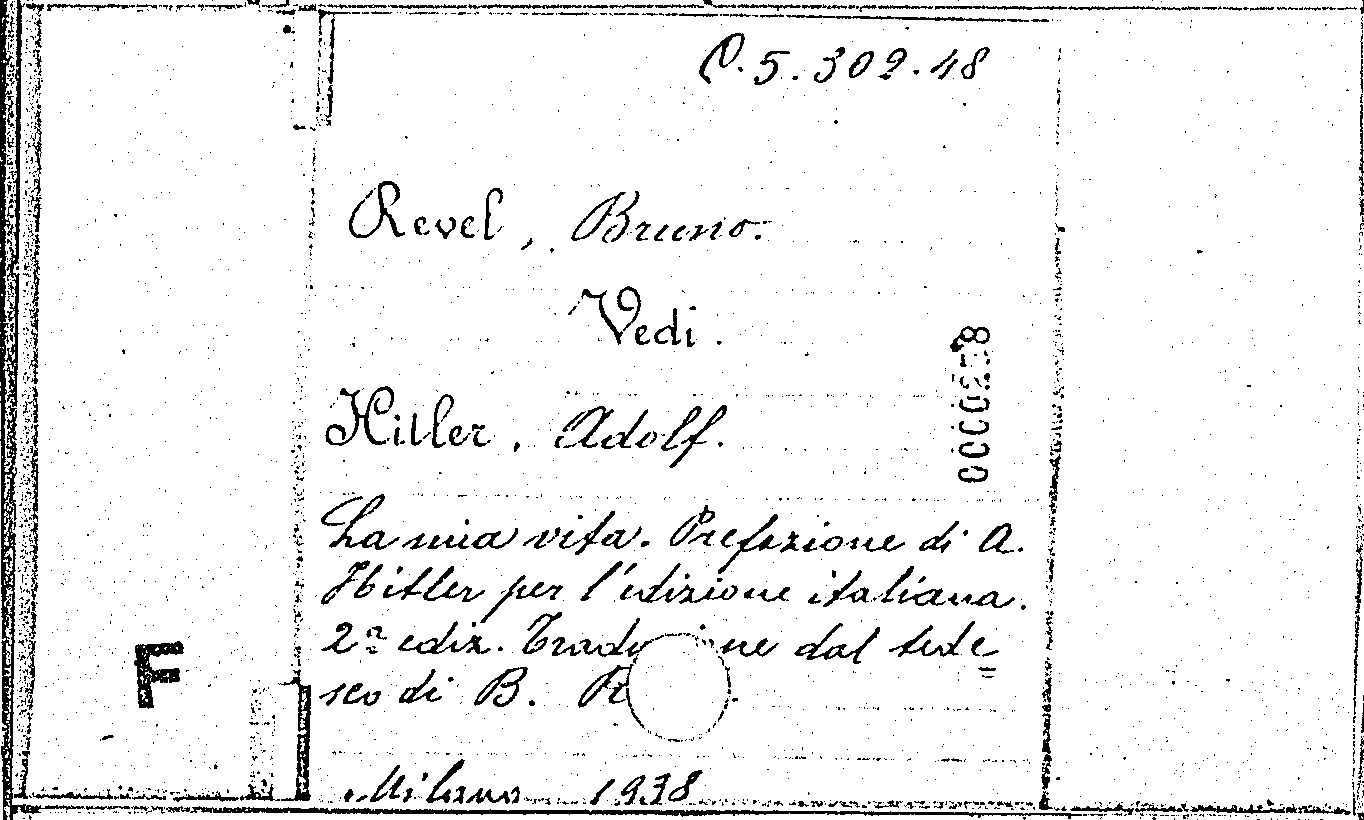 P.5.302.48
Revel, Bruno.
Vedi.
Hitler, Adolf.
La mia vita. Prefazione di A.
Hitler per l'edizione italiana.
2ª ediz. Tradu ne dal tede
sco di B. R
Milano 1938
F